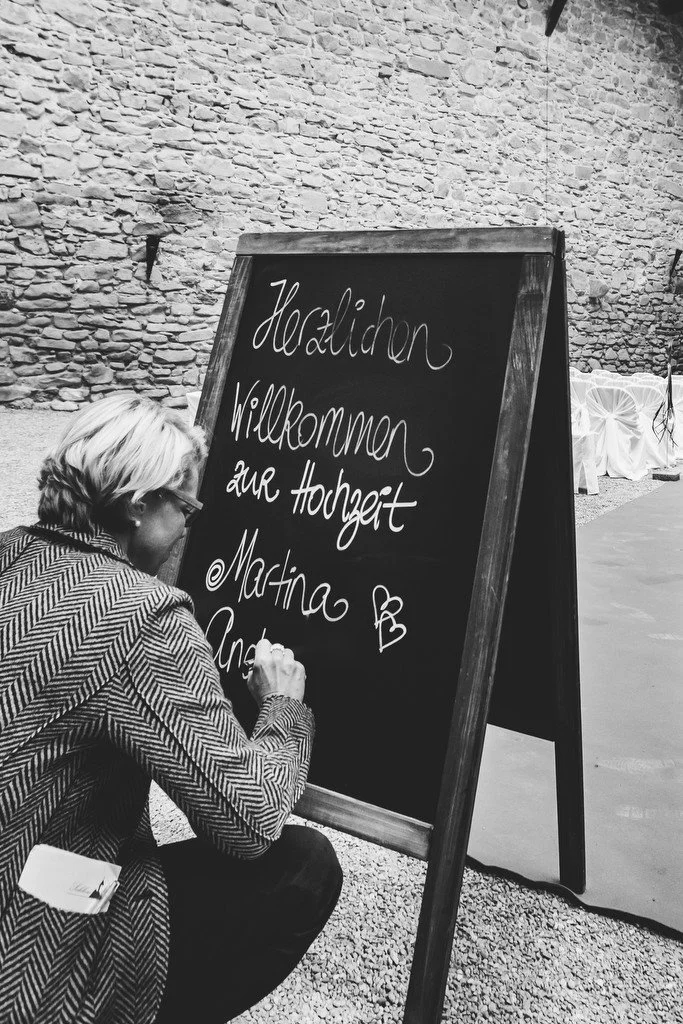 Herzlichen
Willkommen
zur Hochzeit
Martina